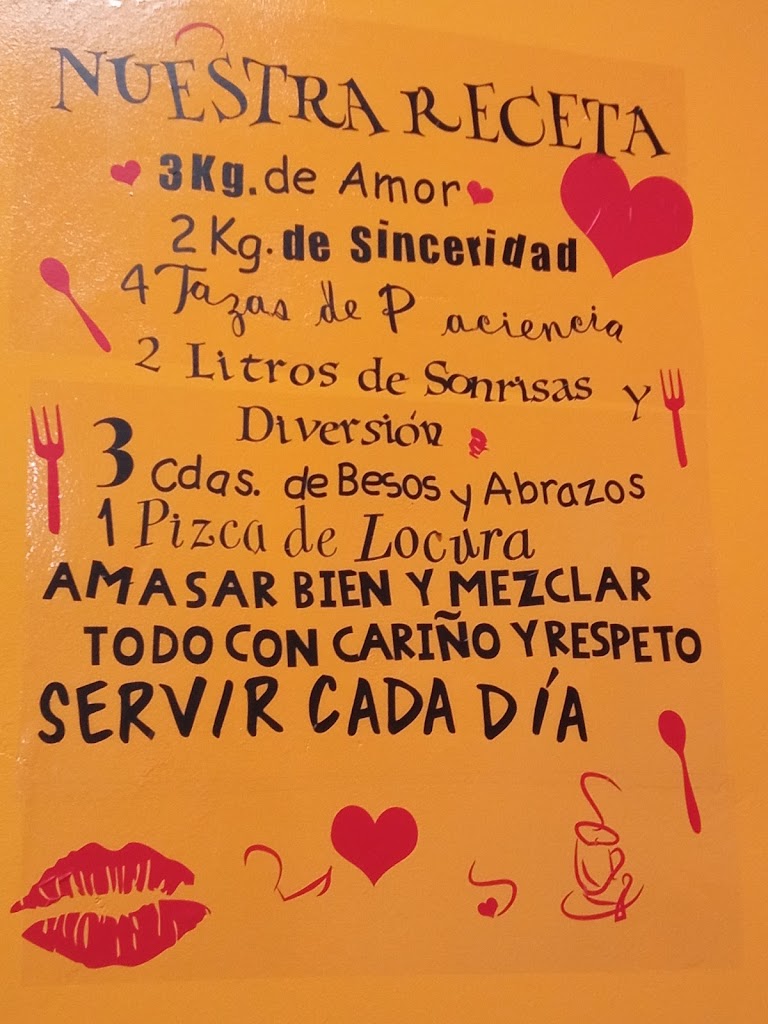 NUESTRA RECETA
3Kg. de Amor
2 Kg. de Sinceridad
4 Tazas de P aciencia
2 Litros de Sonrisas y
Diversión
3 Cdas. de Besos y Abrazos
1 Pizca de Locura
AMASAR BIEN Y MEZCLAR
TODO CON CARIÑO Y RESPETO
SERVIR CADA DÍA